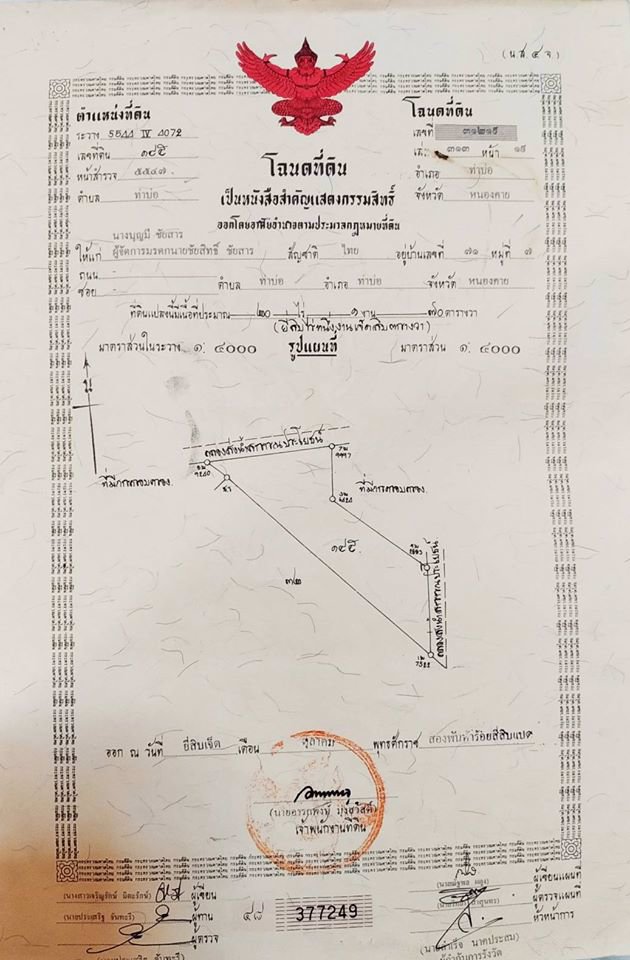 (น.ส.๔ จ.)
ตำแหน่งที่ดิน
ระวาง 5544 IV 4072
เลขที่ดิน ๑๔๕
หน้าสำรวจ ๕๕๔๗
ตำบล ท่าบ่อ
โฉนดที่ดิน
เลขที่ ๓๑๒๑๕
เล่ม ๓๑๓ หน้า ๑๕
อำเภอ ท่าบ่อ
จังหวัด หนองคาย
โฉนดที่ดิน
เป็นหนังสือสำคัญแสดงกรรมสิทธิ์
ออกโดยอาศัยอำนาจตามประมวลกฎหมายที่ดิน
นางบุญมี ชัยสาร
ให้แก่ ผู้จัดการมรดกนายชัยสิทธิ์ ชัยสาร สัญชาติ ไทย อยู่บ้านเลขที่ ๗๑ หมู่ที่ ๗
ถนน
ซอย - ตำบล ท่าบ่อ อำเภอ ท่าบ่อ จังหวัด หนองคาย
ที่ดินแปลงนี้มีเนื้อที่ประมาณ ๒๐ ไร่ ๑ งาน ๗๐ ตารางวา
(ยี่สิบไร่หนึ่งงานเจ็ดสิบตารางวา)
มาตราส่วนในระวาง ๑: ๔๐๐๐ รูปแผนที่ มาตราส่วน ๑: ๔๐๐๐
น
คลองส่งน้ำสาธารณประโยชน์
ที่มีการครอบครอง
ที่มีการครอบครอง
๑๔๕
๓๒
คลองส่งน้ำสาธารณประโยชน์
ออก ณ วันที่ ยี่สิบเจ็ด เดือน ตุลาคม พุทธศักราช สองพันห้าร้อยสี่สิบแปด
เจ้าพนักงานที่ดิน
ผู้เขียน
ผู้ทาน
ผู้ตรวจ
๔๘ 377249
ผู้เขียนแผนที่
ผู้ตรวจแผนที่
หัวหน้าการ
ผู้กำกับการรังวัด